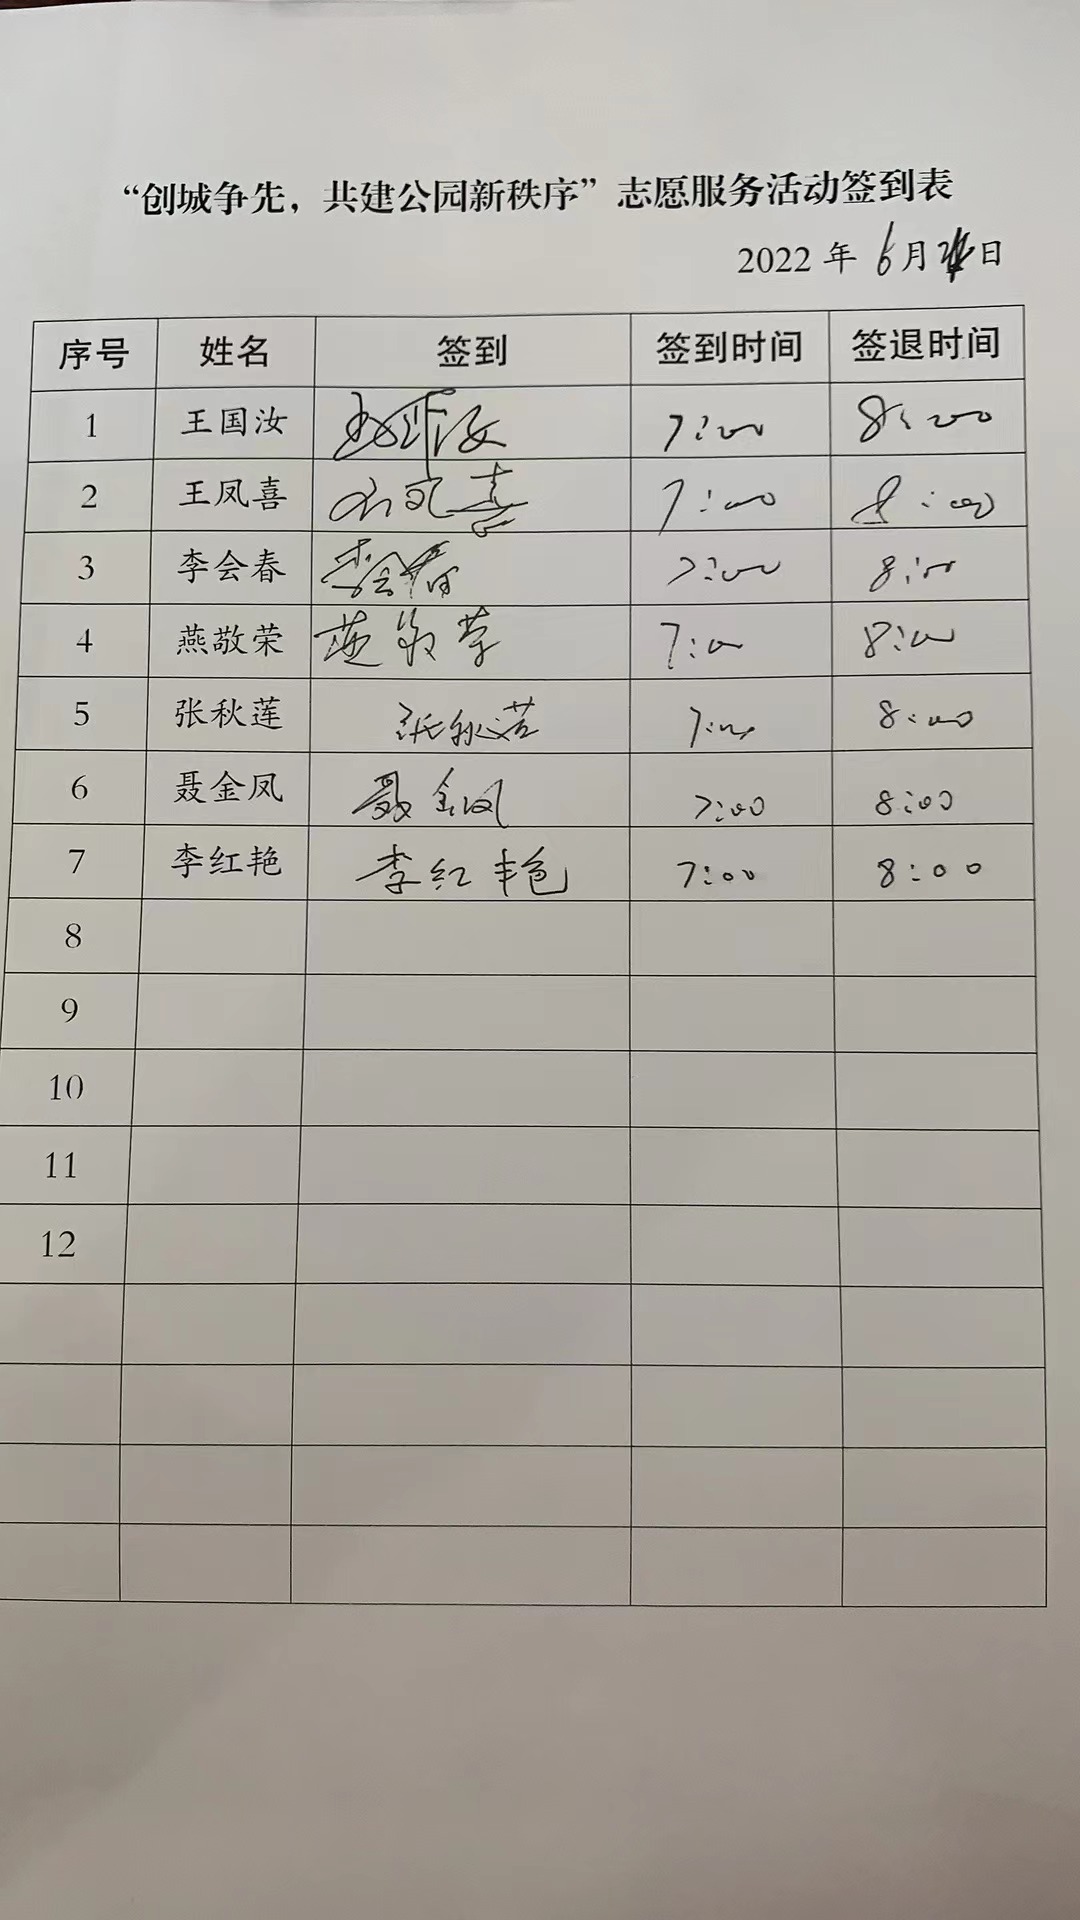 “创城争先，共建公园新秩序”志愿服务活动签到表
2022 年 6月 日
序号 姓名 签到 签到时间 签退时间
1 王国汝 王国汝 7:00 8:00
2 王凤喜 王凤喜 7:00 8:00
3 李会春 李会春 7:00 8:00
4 燕敬荣 燕敬荣 7:00 8:00
5 张秋莲 张秋莲 7:00 8:00
6 聂金凤 聂金凤 7:00 8:00
7 李红艳 李红艳 7:00 8:00
8
9
10
11
12